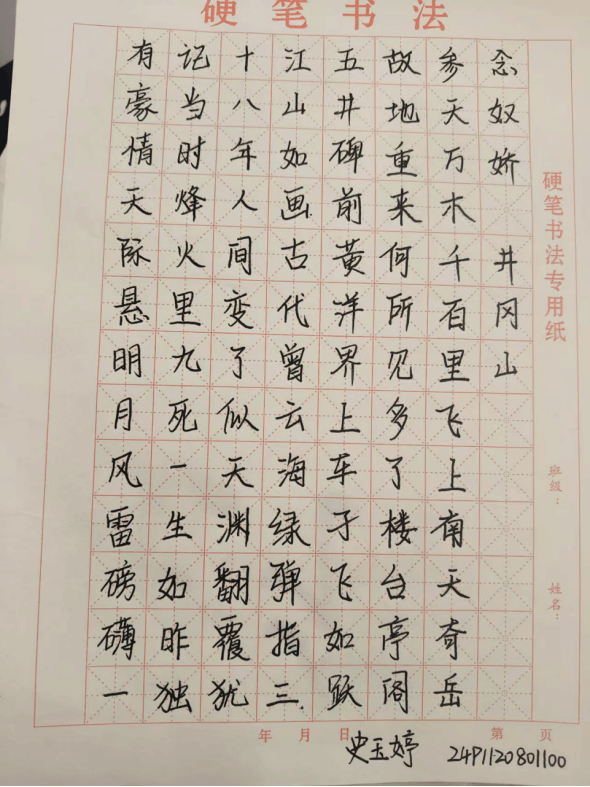 硬笔书法
念奴娇 井冈山
参天万木千百里飞上南天奇岳
故地重来何所见多了楼台亭阁
五井碑前黄洋界上车子飞如跃
江山如画古代曾云海绿弹指三
十八年人间变了似天渊翻覆犹
记当时烽火里九死一生如昨独
有豪情天际悬明月风雷磅礴一
硬笔书法专用纸
班级：
姓名：
年 月 日 第 页
史玉婷 24P1120801100